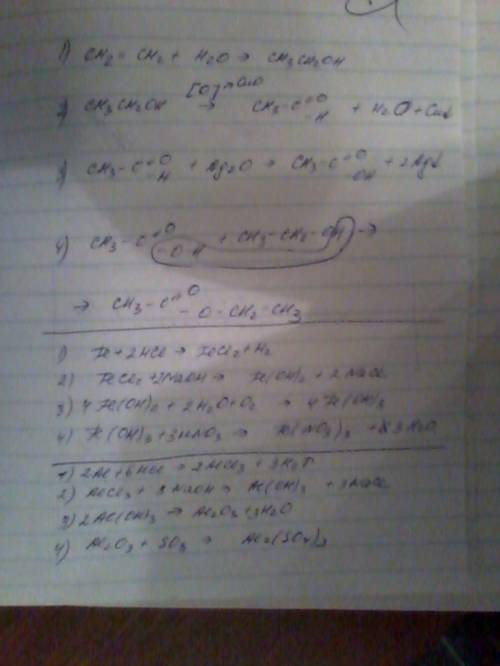 1) CH2 = CH2 + H2O → CH3CH2OH
2) CH3CH2OH [O] CuO → CH3-C=O -H + H2O + Cu↓
3) CH3-C=O -H + Ag2O → CH3-C=O -OH + 2Ag↓
4) CH3-C=O -O-H + CH3-CH2-OH →
→ CH3-C=O -O-CH2-CH3
1) Fe + 2HCl → FeCl2 + H2
2) FeCl2 + 2NaOH → Fe(OH)2 + 2NaCl
3) 4Fe(OH)2 + 2H2O + O2 → 4Fe(OH)3
4) Fe(OH)3 + 3HNO3 → Fe(NO3)3 + 3H2O
1) 2Al + 6HCl → 2AlCl3 + 3H2↑
2) AlCl3 + 3NaOH → Al(OH)3 + 3NaCl
3) 2Al(OH)3 → Al2O3 + 3H2O
4) Al2O3 + SO3 → Al2(SO4)3